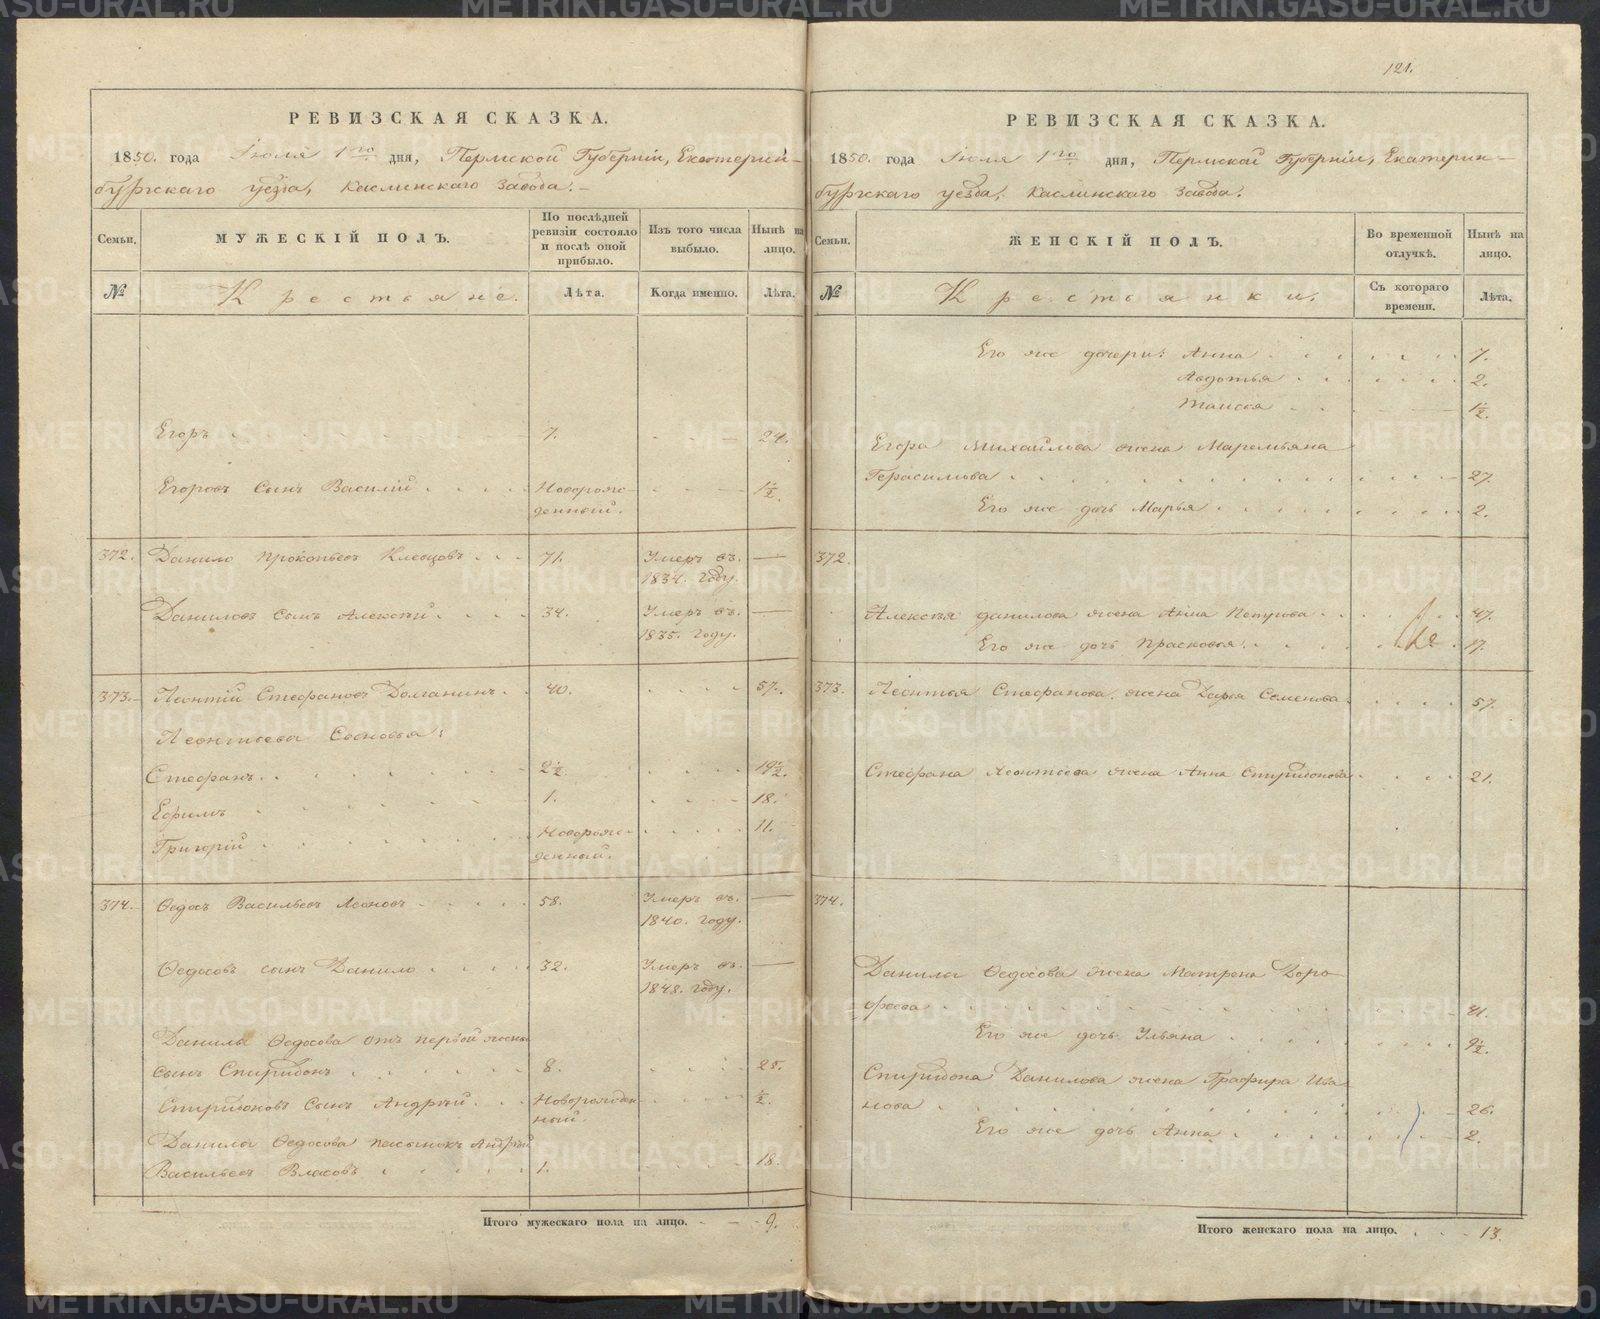 121.
РЕВИЗСКАЯ СКАЗКА.
1850. года Іюля 1го дня, Пермской Губерніи, Екатерин-
бургскаго уезда, Каслинскаго Завода.
Семьи.
МУЖЕСКІЙ ПОЛЪ.
По послѣдней ревизіи состояло и послѣ оной прибыло.
Изъ того числа выбыло.
Нынѣ на лицо.
№
Крестьяне.
Лѣта.
Когда именно.
Лѣта.
Егоръ 7. 24.
Егоровъ сынъ Василій Новорож- 1½.
денный.
372. Данило Прокопьевъ Клевцовъ 71. Умеръ въ —
1834. году.
Даниловъ сынъ Алексѣй 34. Умеръ въ —
1835. году.
373. Леонтій Стефановъ Доманинъ 40. 57.
Леонтьева Сыновья:
Стефанъ 2½ 19½.
Ефимъ 1. 18.
Григорій Новорож- 11.
денный.
374. Ѳедосъ Васильевъ Леоновъ 58. Умеръ въ —
1840. году.
Ѳедосовъ сынъ Данило 32. Умеръ въ —
1848. году.
Данилы Ѳедосова отъ первой жены
сынъ Спиридонъ 8. 25.
Спиридоновъ сынъ Андрѣй Новорожден ½.
ный.
Данилы Ѳедосова пасынокъ Андрѣй
Васильевъ Власовъ 1. 18.
Итого мужескаго пола на лицо. 9.
РЕВИЗСКАЯ СКАЗКА.
1850. года Іюля 1го дня, Пермской Губерніи, Екатерин-
бургскаго уезда, Каслинскаго Завода.
Семьи.
ЖЕНСКІЙ ПОЛЪ.
Во временной отлучкѣ.
Нынѣ на лицо.
№
Крестьянки.
Съ котораго времени.
Лѣта.
Его же дочери: Анна 7.
Авдотья 2.
Таисья 1½.
Егора Михайлова жена Маремьяна
Герасимова 27.
Его же дочь Марья 2.
372.
Алексѣя Данилова жена Анна Петрова 47.
Его же дочь Прасковья 17.
373. Леонтья Стефанова жена Дарья Семенова 57.
Стефана Леонтьева жена Анна Спиридонова 21.
374.
Данилы Ѳедосова жена Матрена Доро-
фѣева 41.
Его же дочь Ульяна 9½.
Спиридона Данилова жена Графира Ива
нова 26.
Его же дочь Анна 2.
Итого женскаго пола на лицо. 13.
METRIKI.GASO-URAL.RU